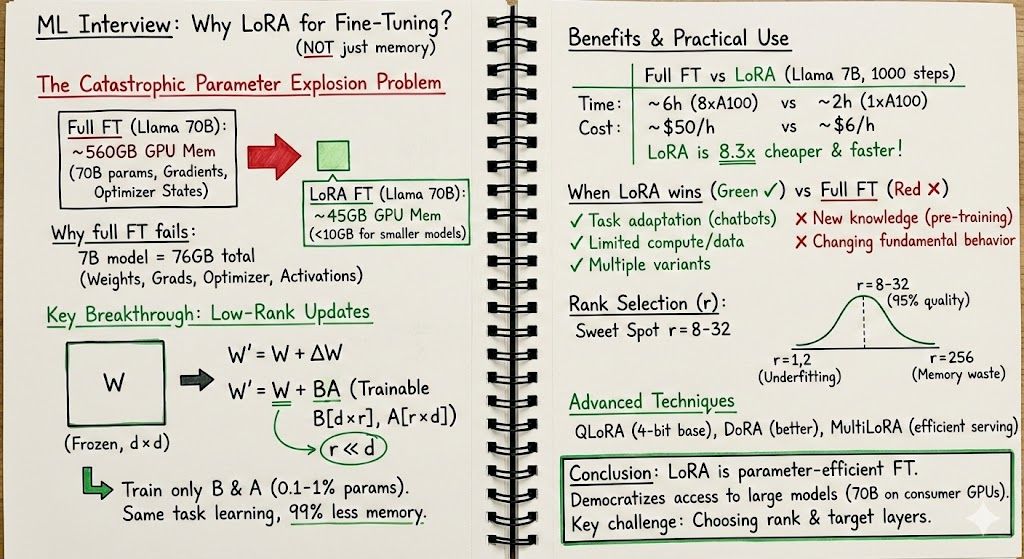 ML Interview: Why LoRA for Fine-Tuning?
(NOT just memory)
The Catastrophic Parameter Explosion Problem
Full FT (Llama 70B):
~560GB GPU Mem
(70B params, Gradients,
Optimizer States)
LoRA FT (Llama 70B):
~45GB GPU Mem
(<10GB for smaller models)
Why full FT fails:
7B model = 76GB total
(Weights, Grads, Optimizer, Activations)
Key Breakthrough: Low-Rank Updates
W
(Frozen, d×d)
W' = W + ΔW
W' = W + BA (Trainable
B[d×r], A[r×d])
r ≪ d
Train only B & A (0.1-1% params).
Same task learning, 99% less memory.
Benefits & Practical Use
Full FT vs LoRA (Llama 7B, 1000 steps)
Time: ~6h (8xA100) vs ~2h (1xA100)
Cost: ~$50/h vs ~$6/h
LoRA is 8.3x cheaper & faster!
When LoRA wins (Green ✓) vs Full FT (Red ✗)
✓ Task adaptation (chatbots)
✓ Limited compute/data
✓ Multiple variants
✗ New knowledge (pre-training)
✗ Changing fundamental behavior
Rank Selection (r):
Sweet Spot r=8-32
r=8-32
(95% quality)
r=1,2
(Underfitting)
r=256
(Memory waste)
Advanced Techniques
QLoRA (4-bit base), DoRA (better), MultiLoRA (efficient serving)
Conclusion: LoRA is parameter-efficient FT.
Democratizes access to large models (70B on consumer GPUs).
Key challenge: Choosing rank & target layers.